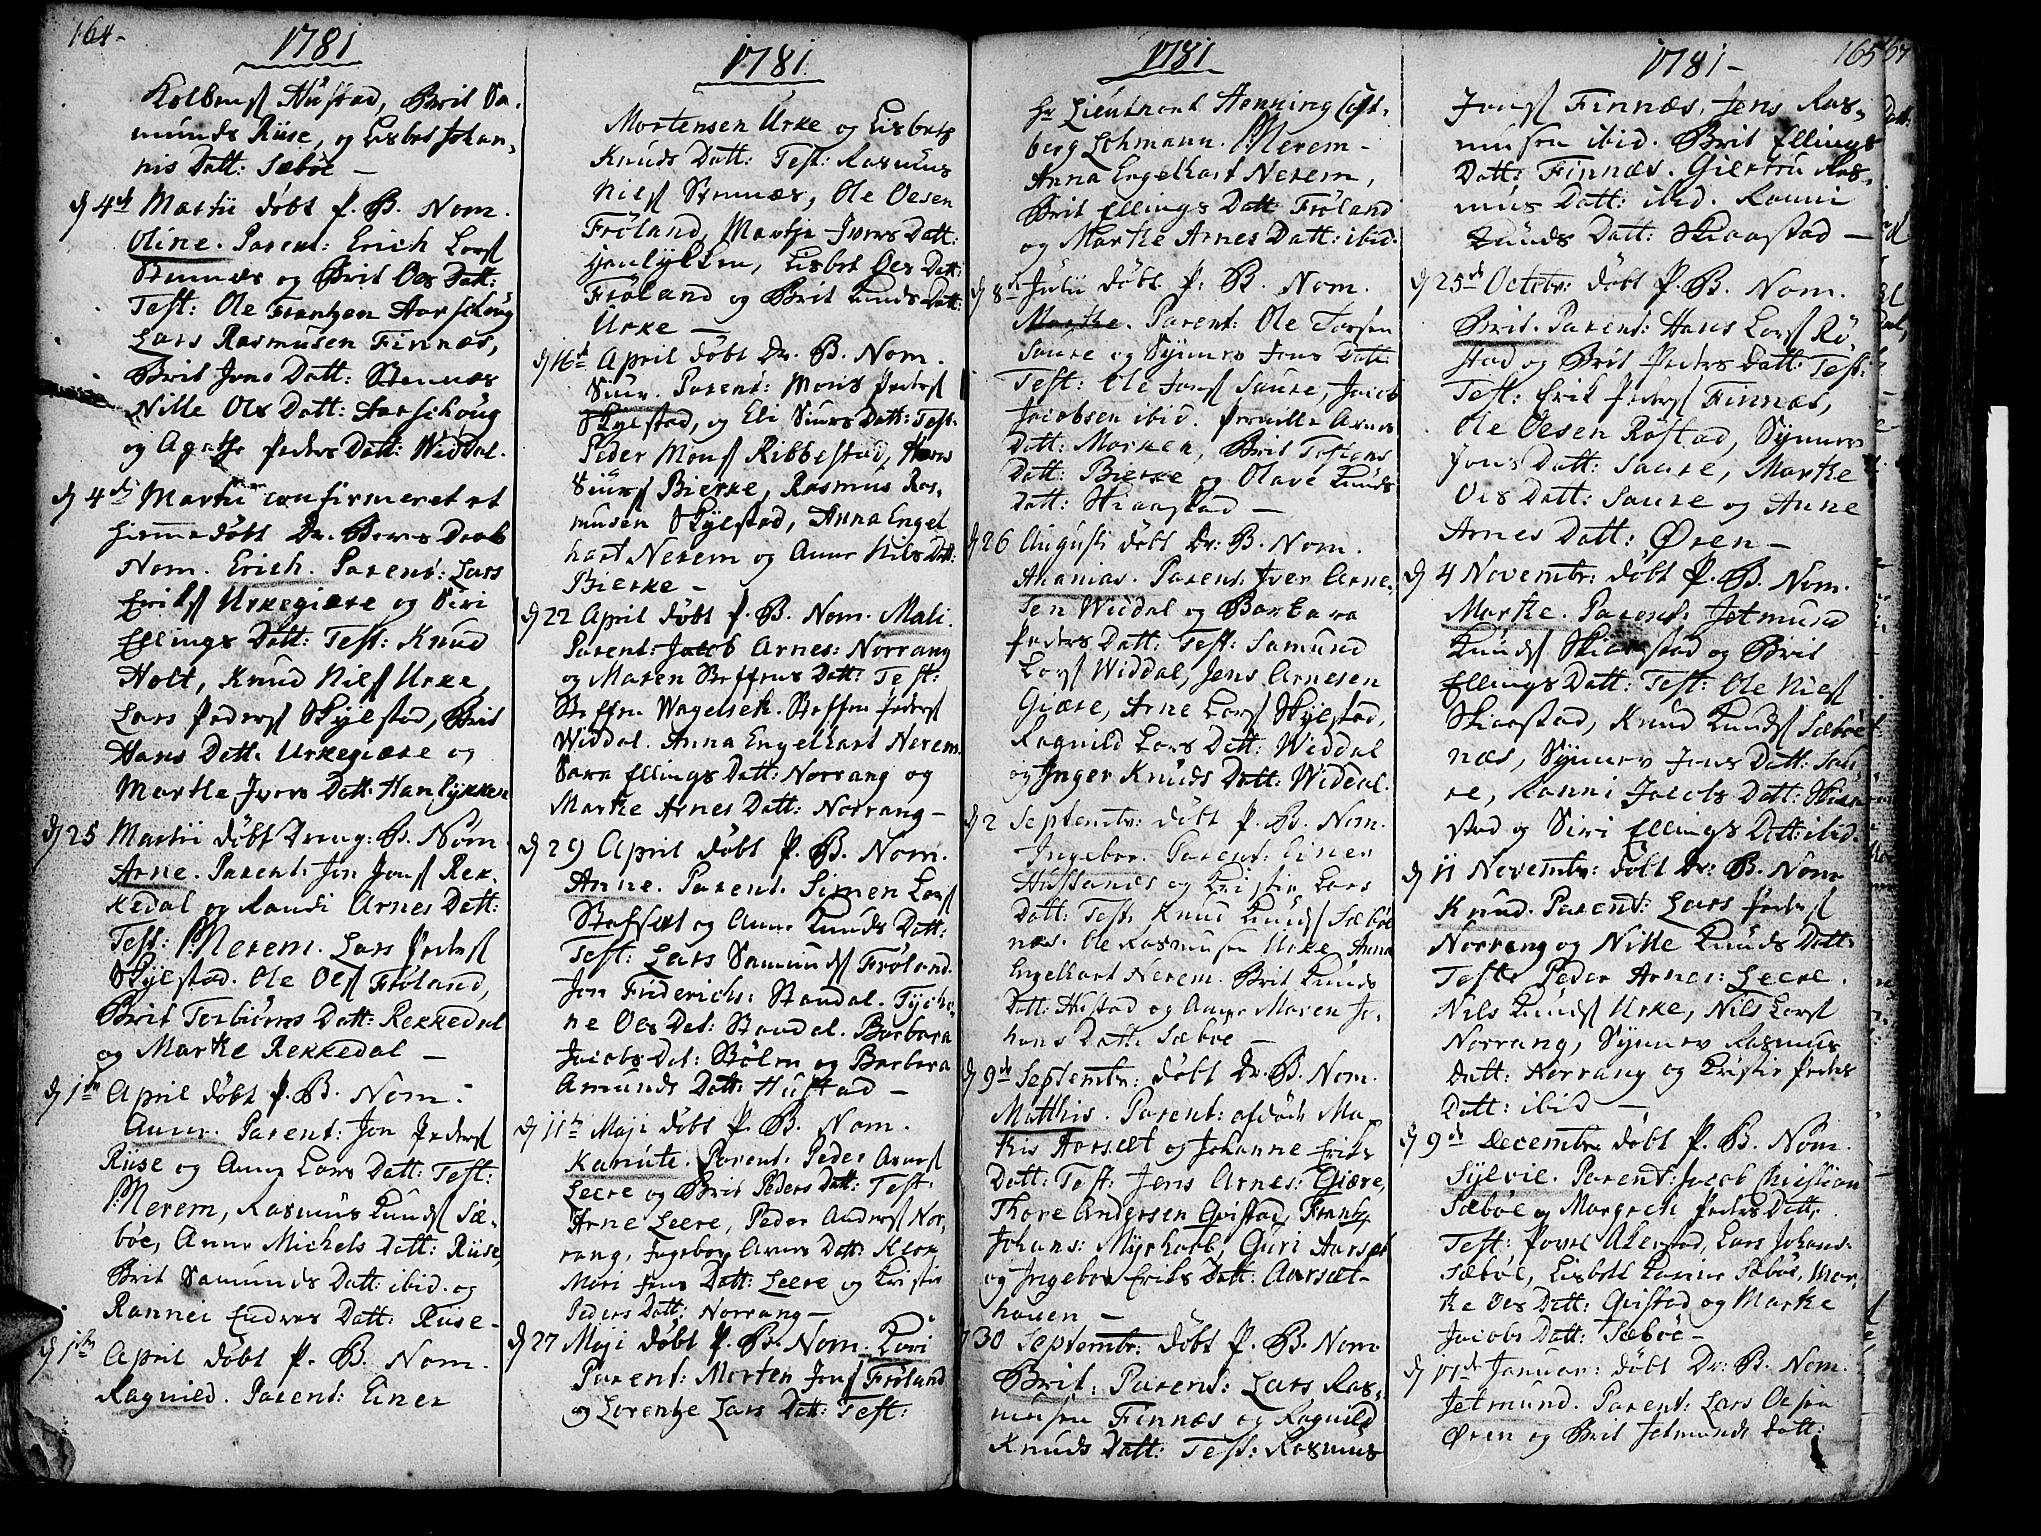 164-
1781
Kolbens Hustad, Brit Sa-
munds Riise, og Lisbet Johan-
nis Datt: Sæbøe -
D 4de Martii døbt P. B. Nom.
Oline. Parent: Erich Lars
Stennæs og Brit Oes Datt:
Test: Ole Frantzen Aarschoug
Lars Rasmusen Finnæs,
Brit Jons Datt: Stennæs
Nille Ols Datt: Aarschoug
og Agathe Peders Datt: Widdal.
D 4de Martii confirmeret et
hiemmedøbt Dr. Bens Daab
Nom. Erich. Parent: Lars
Eriks Urkegiære og Siri
Ellings Datt: Test: Knud
Holt, Knud Nils Urke,
Lars Peders Skylstad, Brit
Hans Dett: Urkegiære og
Marthe Ivers Datt: Hanlykken
D 25 Martii døbt Dreng: B. Nom.
Arne. Parent: Jon Jons Rek-
kedal og Randi Arnes Datt:
Test: Merem. Lars Peders
Skylstad. Ole Ols Frøland,
Brit Torbiørns Datt: Rekkedal
og Marthe Rekkedal -
D 1ste April døbt P. B. Nom.
Anne. Parent: Jon Peders
Riise og Anne Lars Datt: Test:
Merem, Rasmus Knuds Sæ-
bøe, Anne Michels Datt: Riise,
Brit Samunds Datt: ibid. og
Rannei Endres Datt: Riise-
D 1ste April døbt P. B. Nom.
Ragnild. Parent: Einer
1781
Mortensen Urke og Lisbeth
Knuds Datt: Test: Rasmus
Nils Stennæs, Ole Oesen
Frøland, Marthe Ivers Datt:
Lisbet Oes Datt:
Frøland og Brit Knuds Datt:
Urke -
D 16de April døbt Dr. B. Nom.
Siur. Parent: Mons Peders
Skylstad, og Eli Siurs Datt: Test:
Peder Mons Ribbestad, Hans
Siurs Bierke, Rasmus Ras-
musen Skylstad, Anna Engel
hart Nerem og Anne Nils Datt:
Bierke -
D 22 April døbt P. B. Nom. Mali.
Parent: Jacob Arnes: Norrang
og Maren Steffens Datt: Test:
Steffen Wagelsek. Steffen Peders
Widdal. Anna Engelhart Nerem.
Sara Ellings Datt: Norrang og
Marthe Arnes Datt: Norrang -
D 29 April døbt P. B. Nom.
Anne. Parent: Simen Lars
Stafset og Anne Knuds Datt:
Test: Lars Samunds Frøland.
Jon Friderichs: Standal. Tyche-
ne Oes Dat: Standal. Barbara
Jacobs Dat: Bølen og Barbara
Amunds Datt: Hustad -
D 11te Maji døbt P. B. Nom.
Kanute. Parent: Peder Arnes
Leere og Brit Peders Datt: Test:
Arne Leere, Peder Anders Nor-
rang, Ingebor Arnes Datt: Klok
Mari Jens Datt: Leere og Kristi
Peders Datt: Norrang -
D 27 Maji døbt P. B. Nom. Kari
Parent: Morten Jons Frøland
og Lorentze Lars Datt: Test:
1781
Hr Lieutnant Henning Cast-
berg Lohmann. Merem-
Anna Engelhart Nerem,
Brit Ellings Datt Frøland
og Marthe Arnes Datt: ibid.
D 8de Julii døbt P. B. Nom.
Marthe. Parent: Ole Torsen
Saure og Synnev Jens Datt:
Test: Ole Jons Saure, Jacob
Jacobsen ibid. Pernille Arnes
Datt: Morken, Brit Tostens
Datt: Bierke og Olave Knuds
Datt: Skiaastad -
D 26 Augusti døbt Dr: B. Nom.
Ananias. Parent: Iver Arne-
sen Widdal og Barbara
Peders Datt: Test: Samund
Lars Widdal, Jens Arnesen
Giære, Arne Lars Skylstad,
Ragnild Lars Datt: Widdal
og Inger Knuds Datt: Widdal.
D 2 Septembr: døbt P. B. Nom.
Ingebor. Parent: Einer
Hustanæs og Kristin Lars
Datt: Test: Knud Knuds Sæbøe
næs. Ole Rasmusen Urke, Anna
Engelhart Nerem. Brit Knuds
Datt: Hustad og Anne Maren Jo-
hans Datt: Sæbøe -
D 9de Septembr: døbt Dr. B. Nom.
Matthis. Parent: afdøde Ma-
this Aarsæt og Johanne Eriks
Datt: Test: Jens Arnes: Giære,
Thore Andersen Qvistad, Frantz
Johans: Myrholt, Guri Aarsæt
og Ingebor Eriks Datt: Aarsæt-
haven -
D 30 Septembr: døbt P. B. Nom.
Brit. Parent: Lars Ras-
musen Finnæs og Ragnild
Knuds Datt: Test: Rasmus
1781-
165
Jons Finnæs, Jens Ras-
musen ibid. Brit Ellings
Datt: Finnæs. Giertru Ras-
mus Datt: ibid. Ranni
Knuds Datt: Skiaastad -
D 25de Octobr: døbt P. B. Nom.
Brit. Parent: Hans Lars Rø-
stad og Brit Peders Datt: Test:
Test: Erik Peders Finnæs,
Ole Oesen Røstad, Synnev
Jons Datt: Saure, Marthe
Oes Datt: Saure og Anne
Arnes Datt: Øren -
D 4 Novembr: døbt P. B. Nom.
Marthe. Parent: Jetmund
Knuds Skiaastad og Brit
Ellings Datt: Test: Ole Niels
Skiaastad, Knud Knuds Sæbøe-
næs, Synnev Jons Datt: Sau-
re, Ranni Jacobs Datt: Skiaa-
stad og Siri Ellings Datt: ibid.
D 11 Novembr: døbt Dr: B. Nom
Knud. Parent: Lars Peders
Norrang og Nille Knuds Datt:
Test: Peder Arnes: Leere.
Nils Knuds Urke, Nils Lars
Norrang, Synnev Rasmus
Datt: Norrang og Kristi Peders
Datt: ibid -
D 9de Decembr døbt P. B. Nom.
Sylvie. Parent: Jacob Christian
Sæbøe og Margreth Peders Datt:
Test: Povel Aklestad, Lars Johans:
Sæbøe, Lisbeth Karine Sæbøe, Mar-
the Oes Datt: Qvistad og Marthe
Jacobs Datt: Sæbøe -
D 17de Januar: døbt Dr: B. Nom.
Jetmund. Parent: Lars Olsen
Øren og Brit Jetmunds Datt: